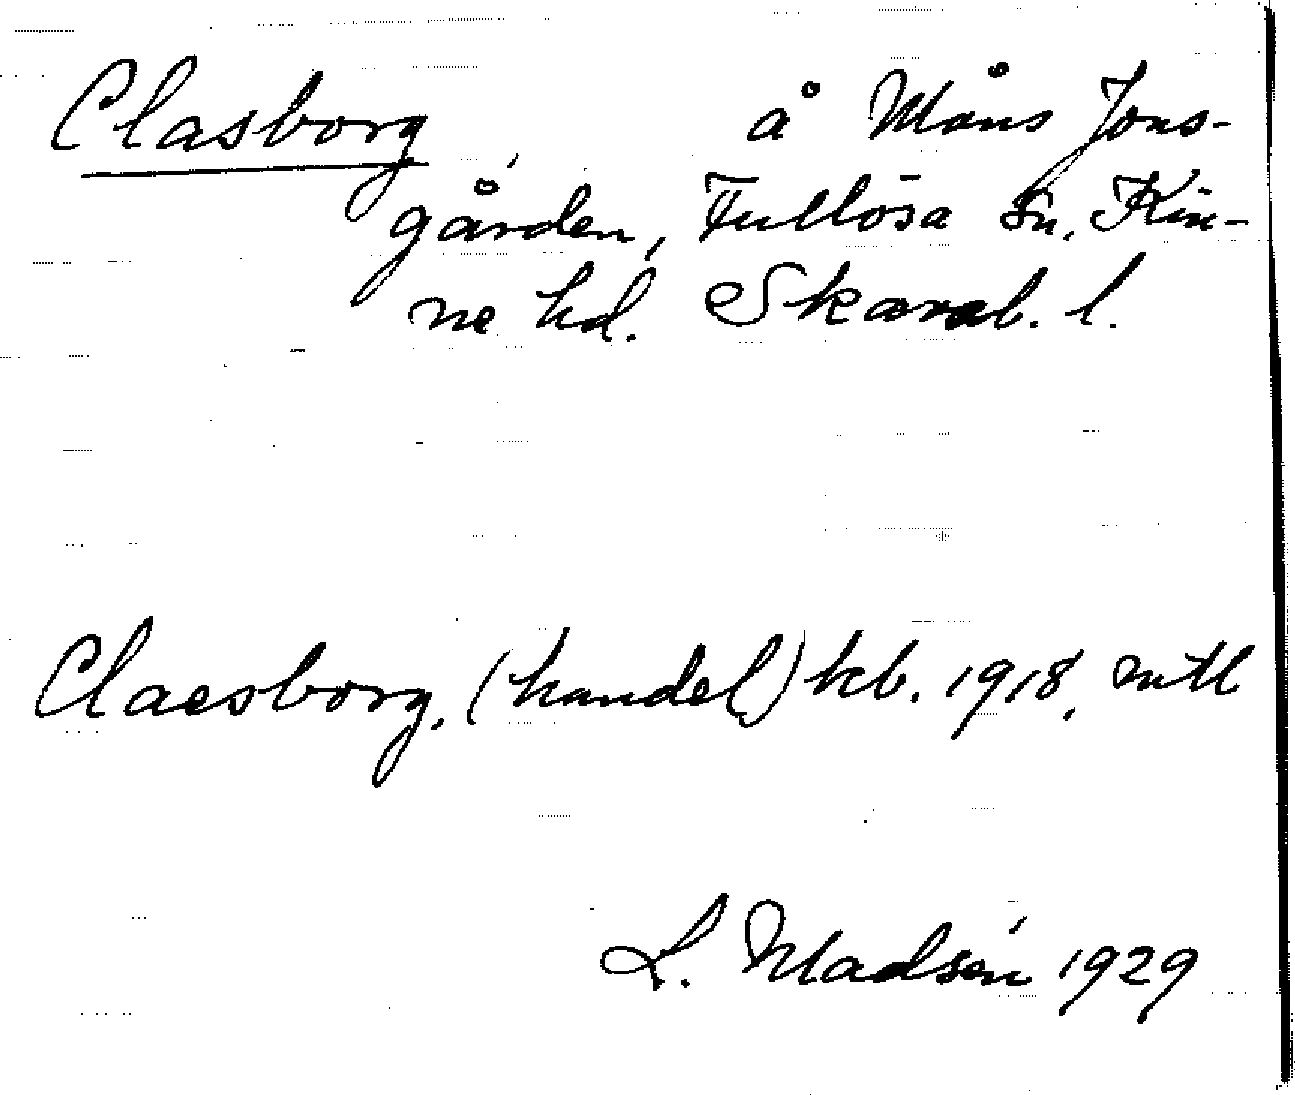 Clasborg å Måns Jons-
gården, Fullösa sn, Kin-
ne hd. Skarab. l.
Claesborg, (handel) kb. 1918,
L. Madsén 1929